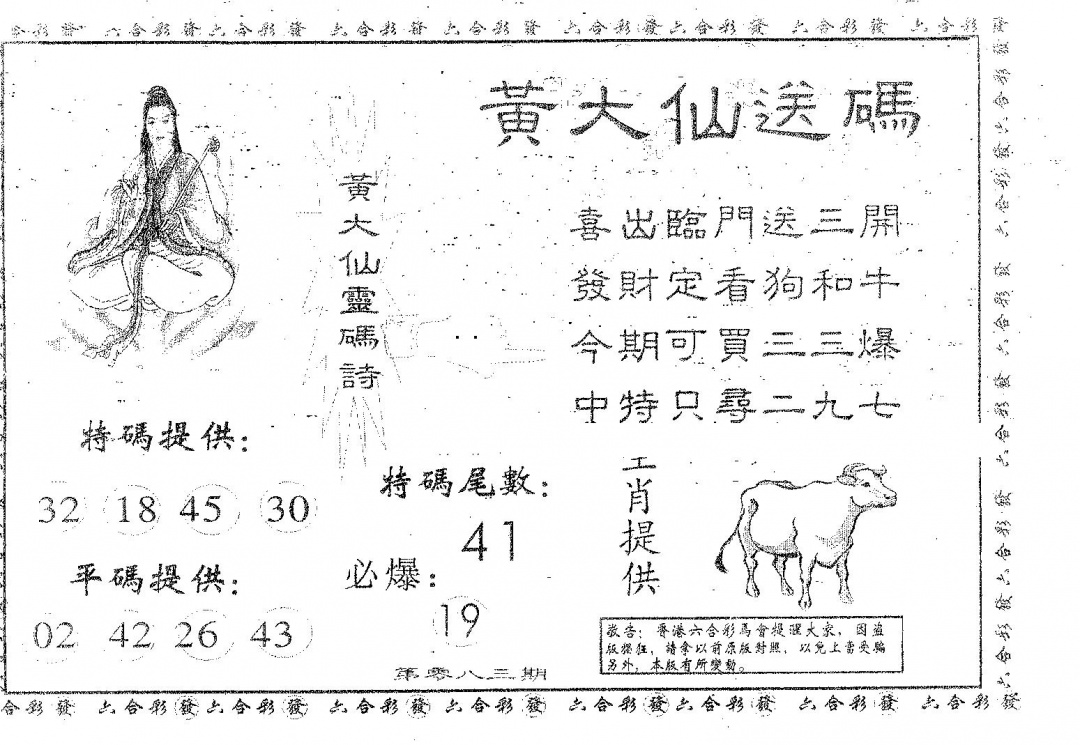 合彩發 六合彩發六合彩發 六合彩發 六合彩發 六合彩發六合彩發 六合彩發 六合彩發
黃大仙送碼
黃大仙靈碼詩
喜出臨門送三開
發財定看狗和牛
今期可買三三爆
中特只尋二九七
特碼提供：
32 18 45 30
平碼提供：
02 42 26 43
特碼尾數：
41
必爆：
19
第零八三期
肖提供
敬告：香港六合彩馬會提醒大家，因盜
版猖狂，請拿以前原版對照，以免上當受騙
另外，本版有所變動。
發六合彩發六合彩發 六合彩發 六合彩發 六合彩發六合彩發六合彩
合彩發 六合彩發六合彩發 六合彩發 六合彩發 六合彩發六合彩發 六合彩發 六合彩發